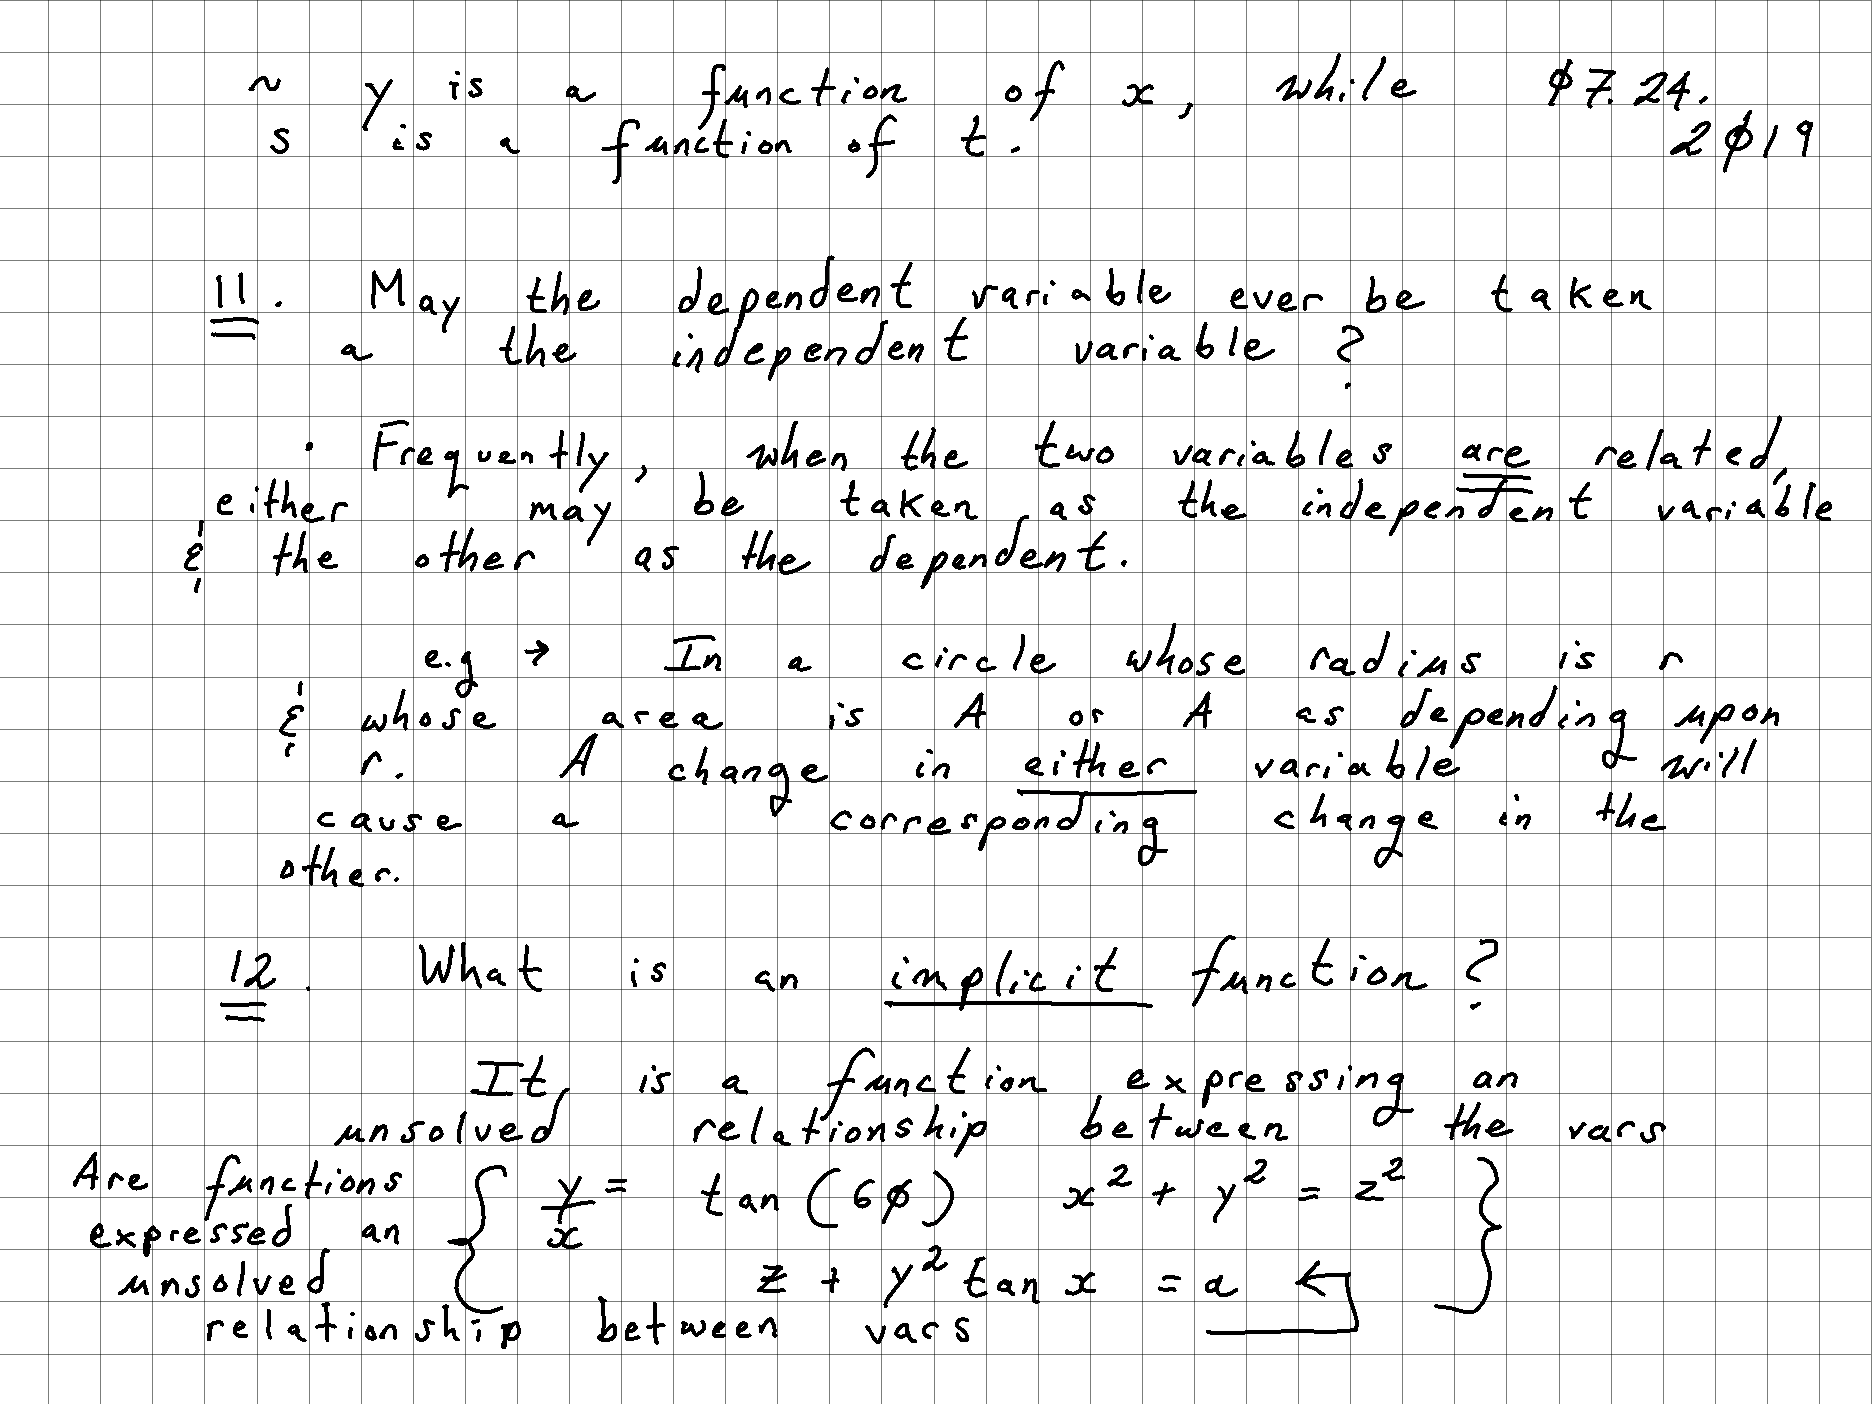 ~ y is a function of x, while ϕ7.24.
s is a function of t. 2ϕ19
11. May the dependent variable ever be taken
a the independent variable?
· Frequently, when the two variables are related,
either may be taken as the independent variable
& the other as the dependent.
e.g → In a circle whose radius is r
& whose area is A or A as depending upon
r. A change in either variable will
cause a corresponding change in the
other.
12. What is an implicit function?
It is a function expressing an
unsolved relationship between the vars
Are functions { y/x = tan(6ϕ) x² + y² = z² }
expressed an
unsolved z + y² tan x = a ←
relationship between vars